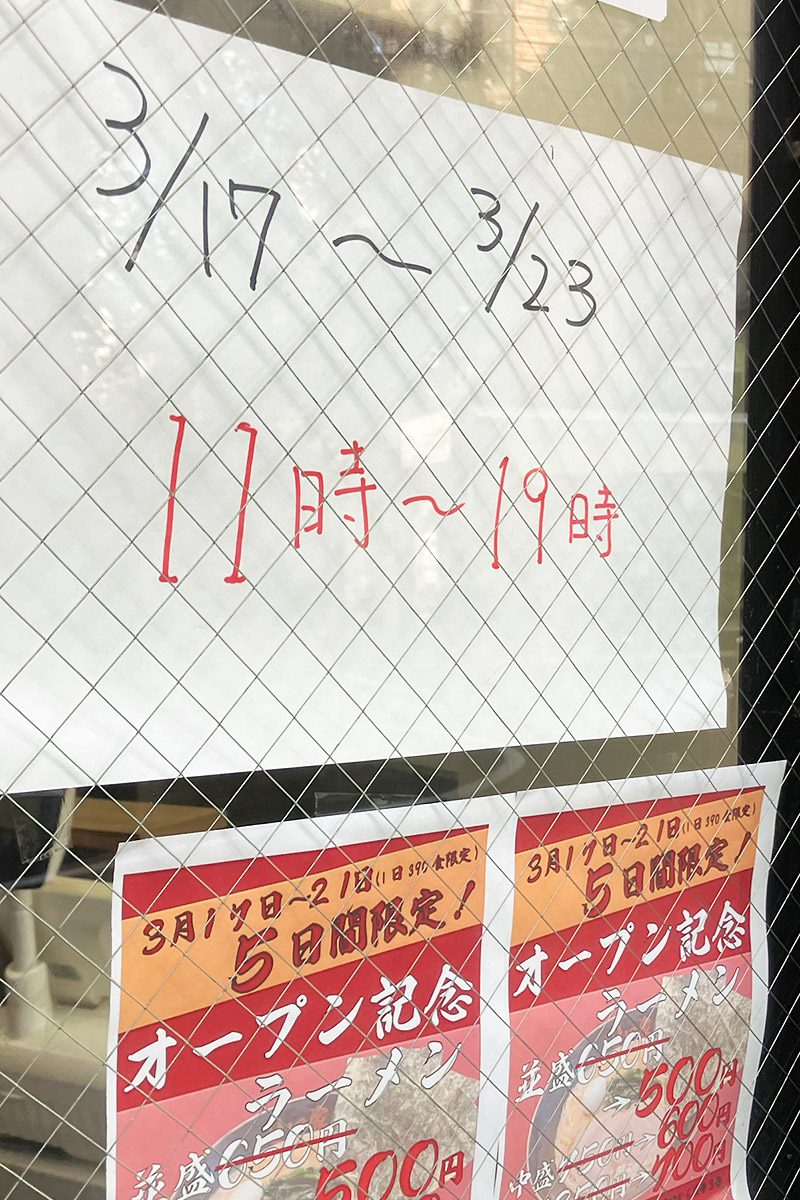 3/17～3/23
11時～19時
3月17日～21日(1日390食限定)
5日間限定!
オープン記念
ラーメン
並盛650円
500円
3月17日～21日(1日390食限定)
5日間限定!
オープン記念
ラーメン
並盛650円
→500円
中盛750円→600円
700円